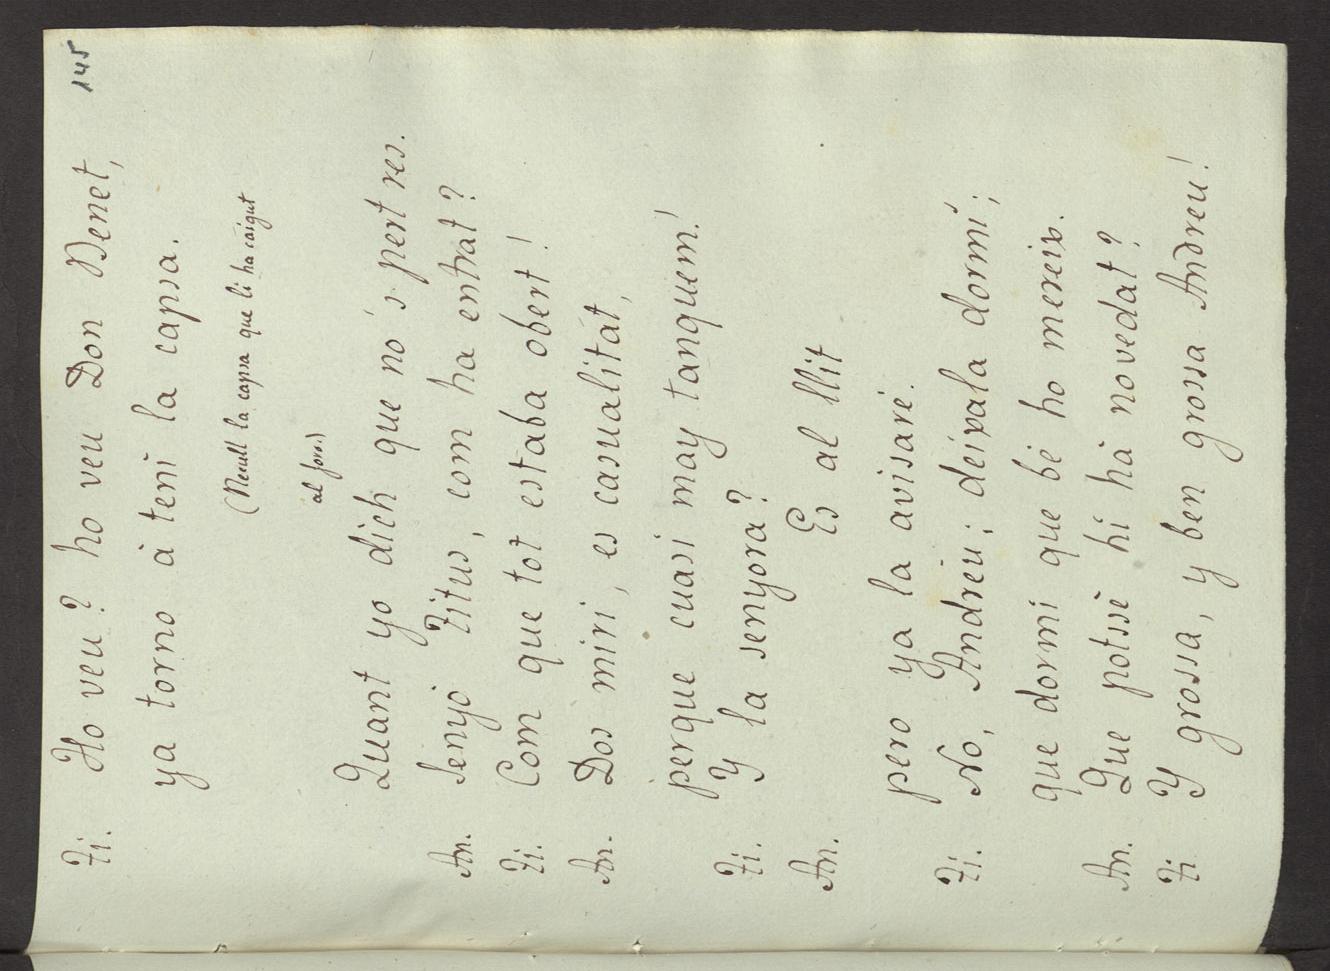 145
Ti. Ho veu? ho veu Don Benet,
ya torno à tení la capsa.
(Recull la capsa que li ha caigut
al foro.)
Quant yo dich que no's pert res.
An. Senyó Titus, com ha entrat?
Ti. Com que tot estaba obert!
An. Dos miri, es casualitat,
perque cuasi may tanquem!
Ti. Y la senyora?
An. Es al llit
pero ya la avisaré.
Ti. No, Andreu; deixala dormí;
que dormi que bé ho mereix.
An. Que potsè hi há novedat?
Ti Y grossa, y ben grossa Andreu!